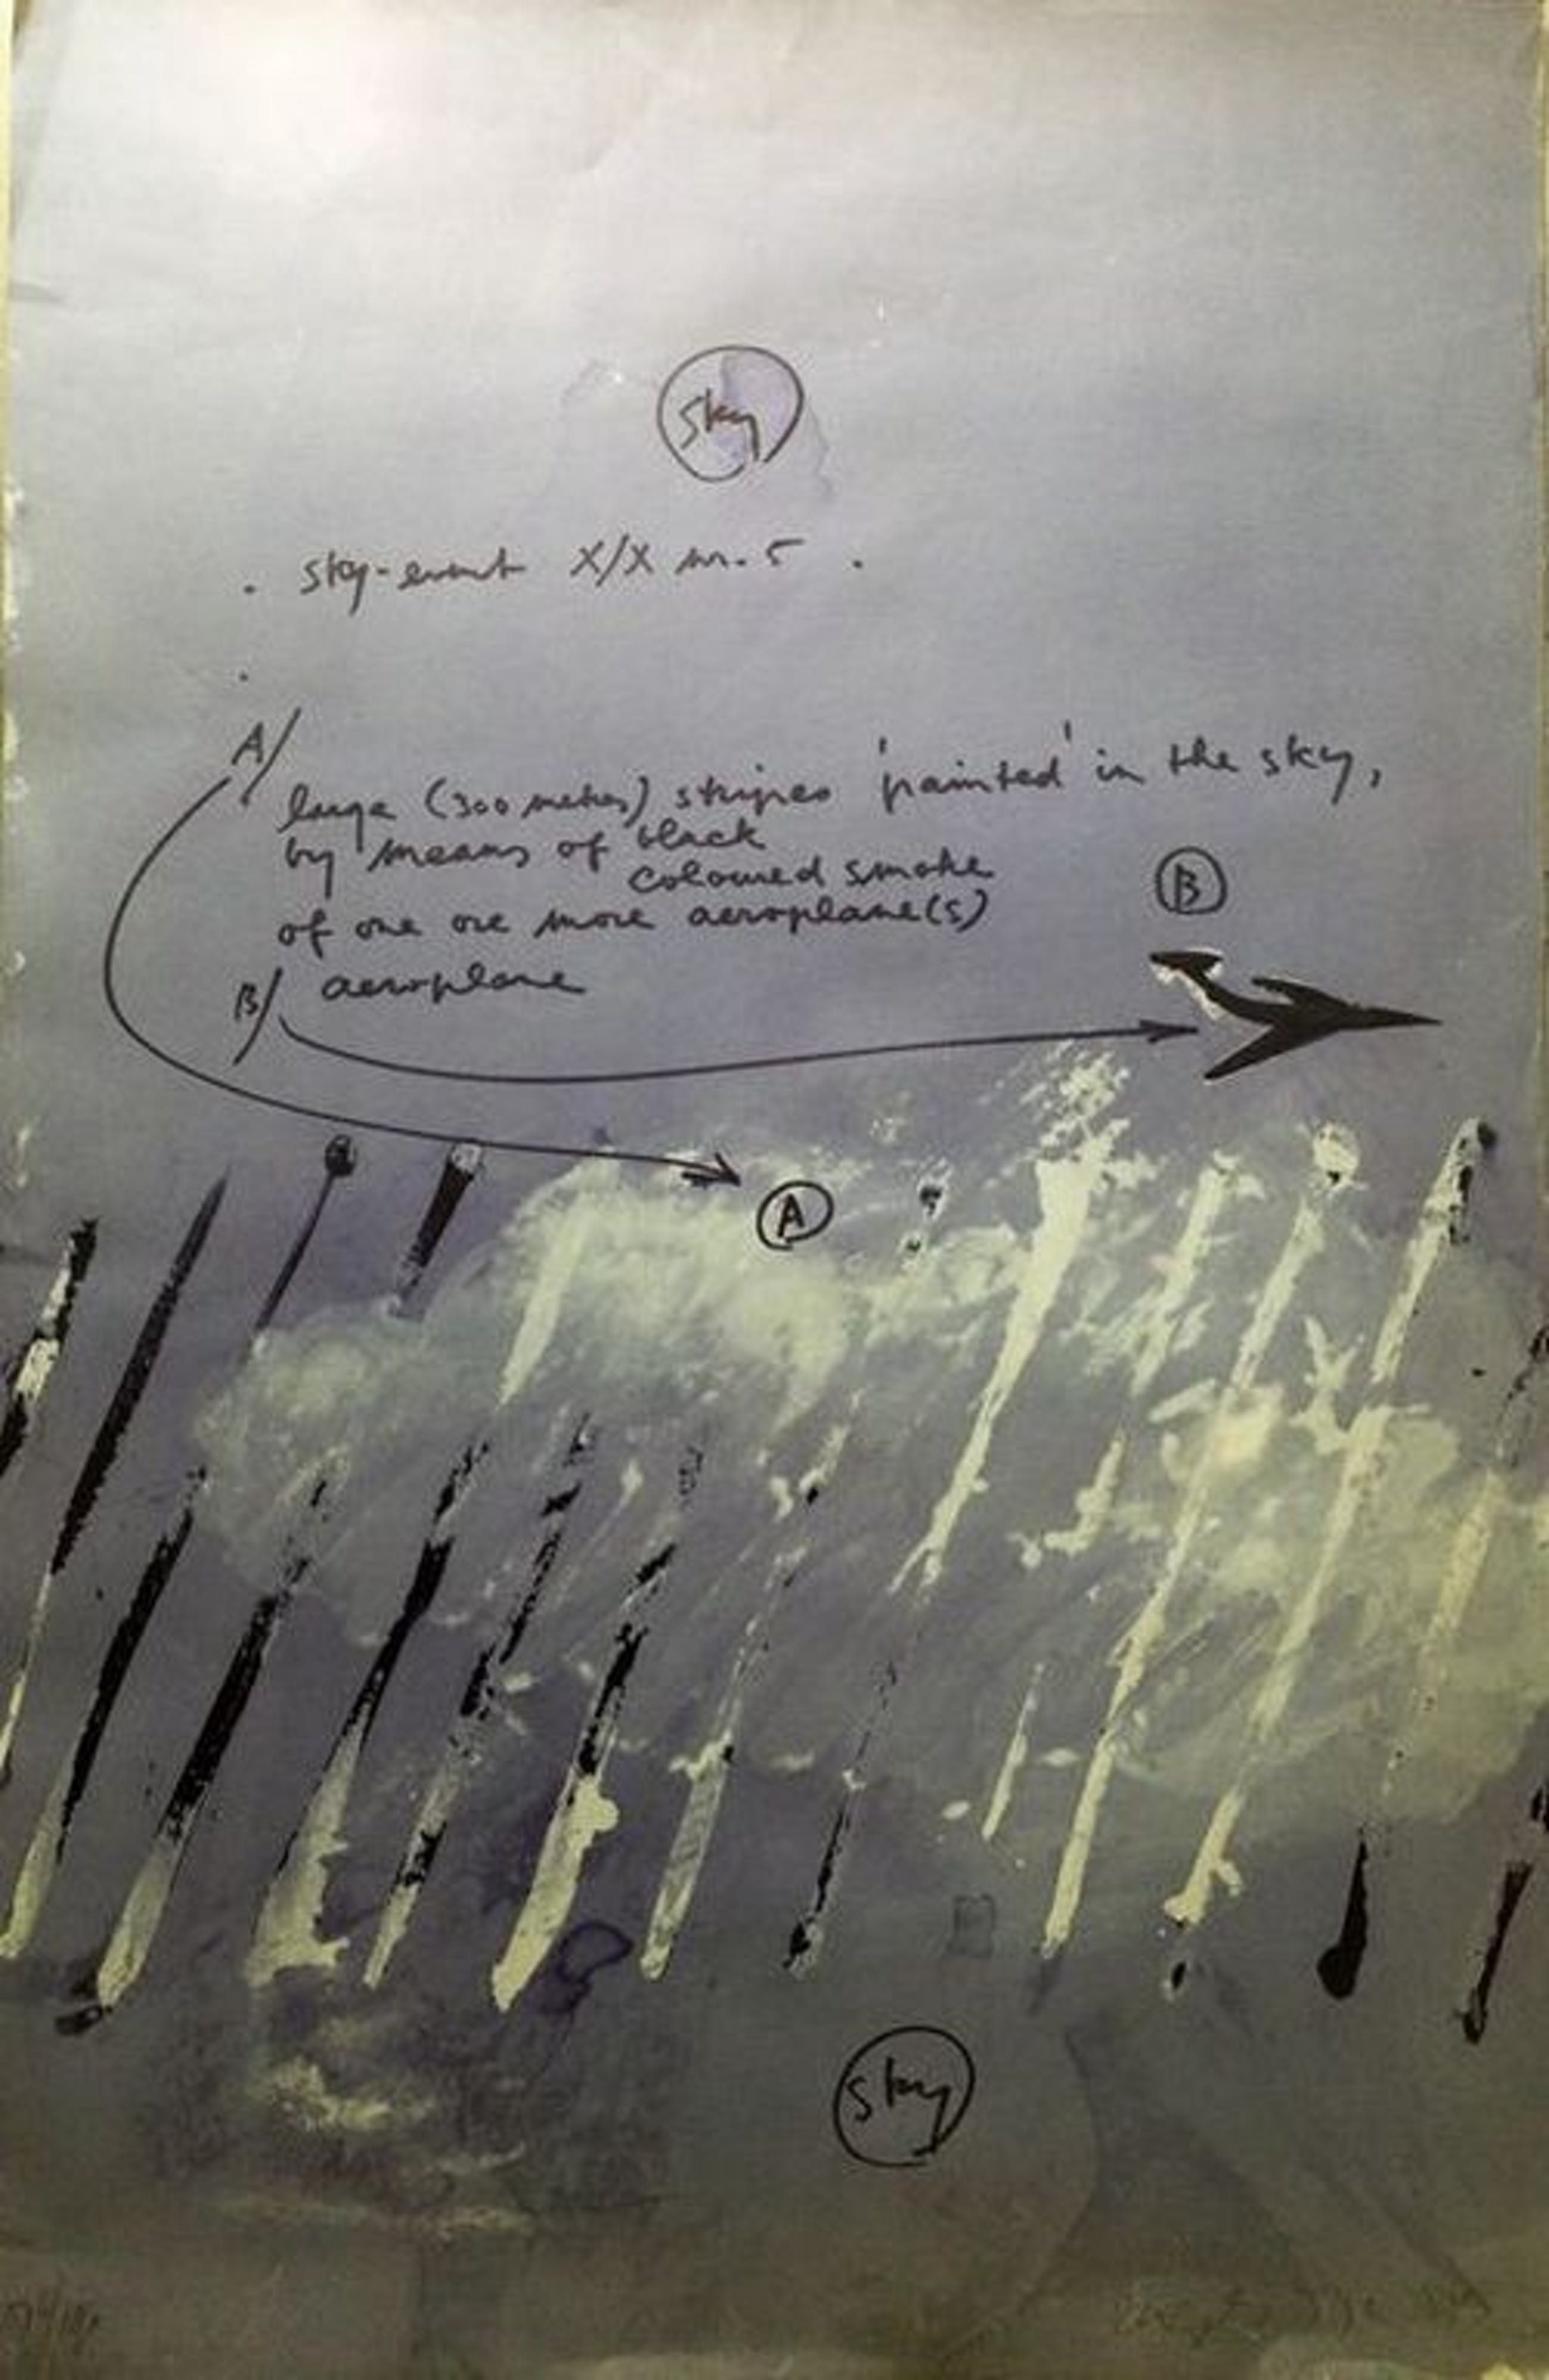 sky
. sky-event X/X nr. 5 .
A/
large (300 metres) stripes 'painted' in the sky,
by means of black
coloured smoke
of one ore more aeroplane(s)
B/ aeroplane
B
A
sky